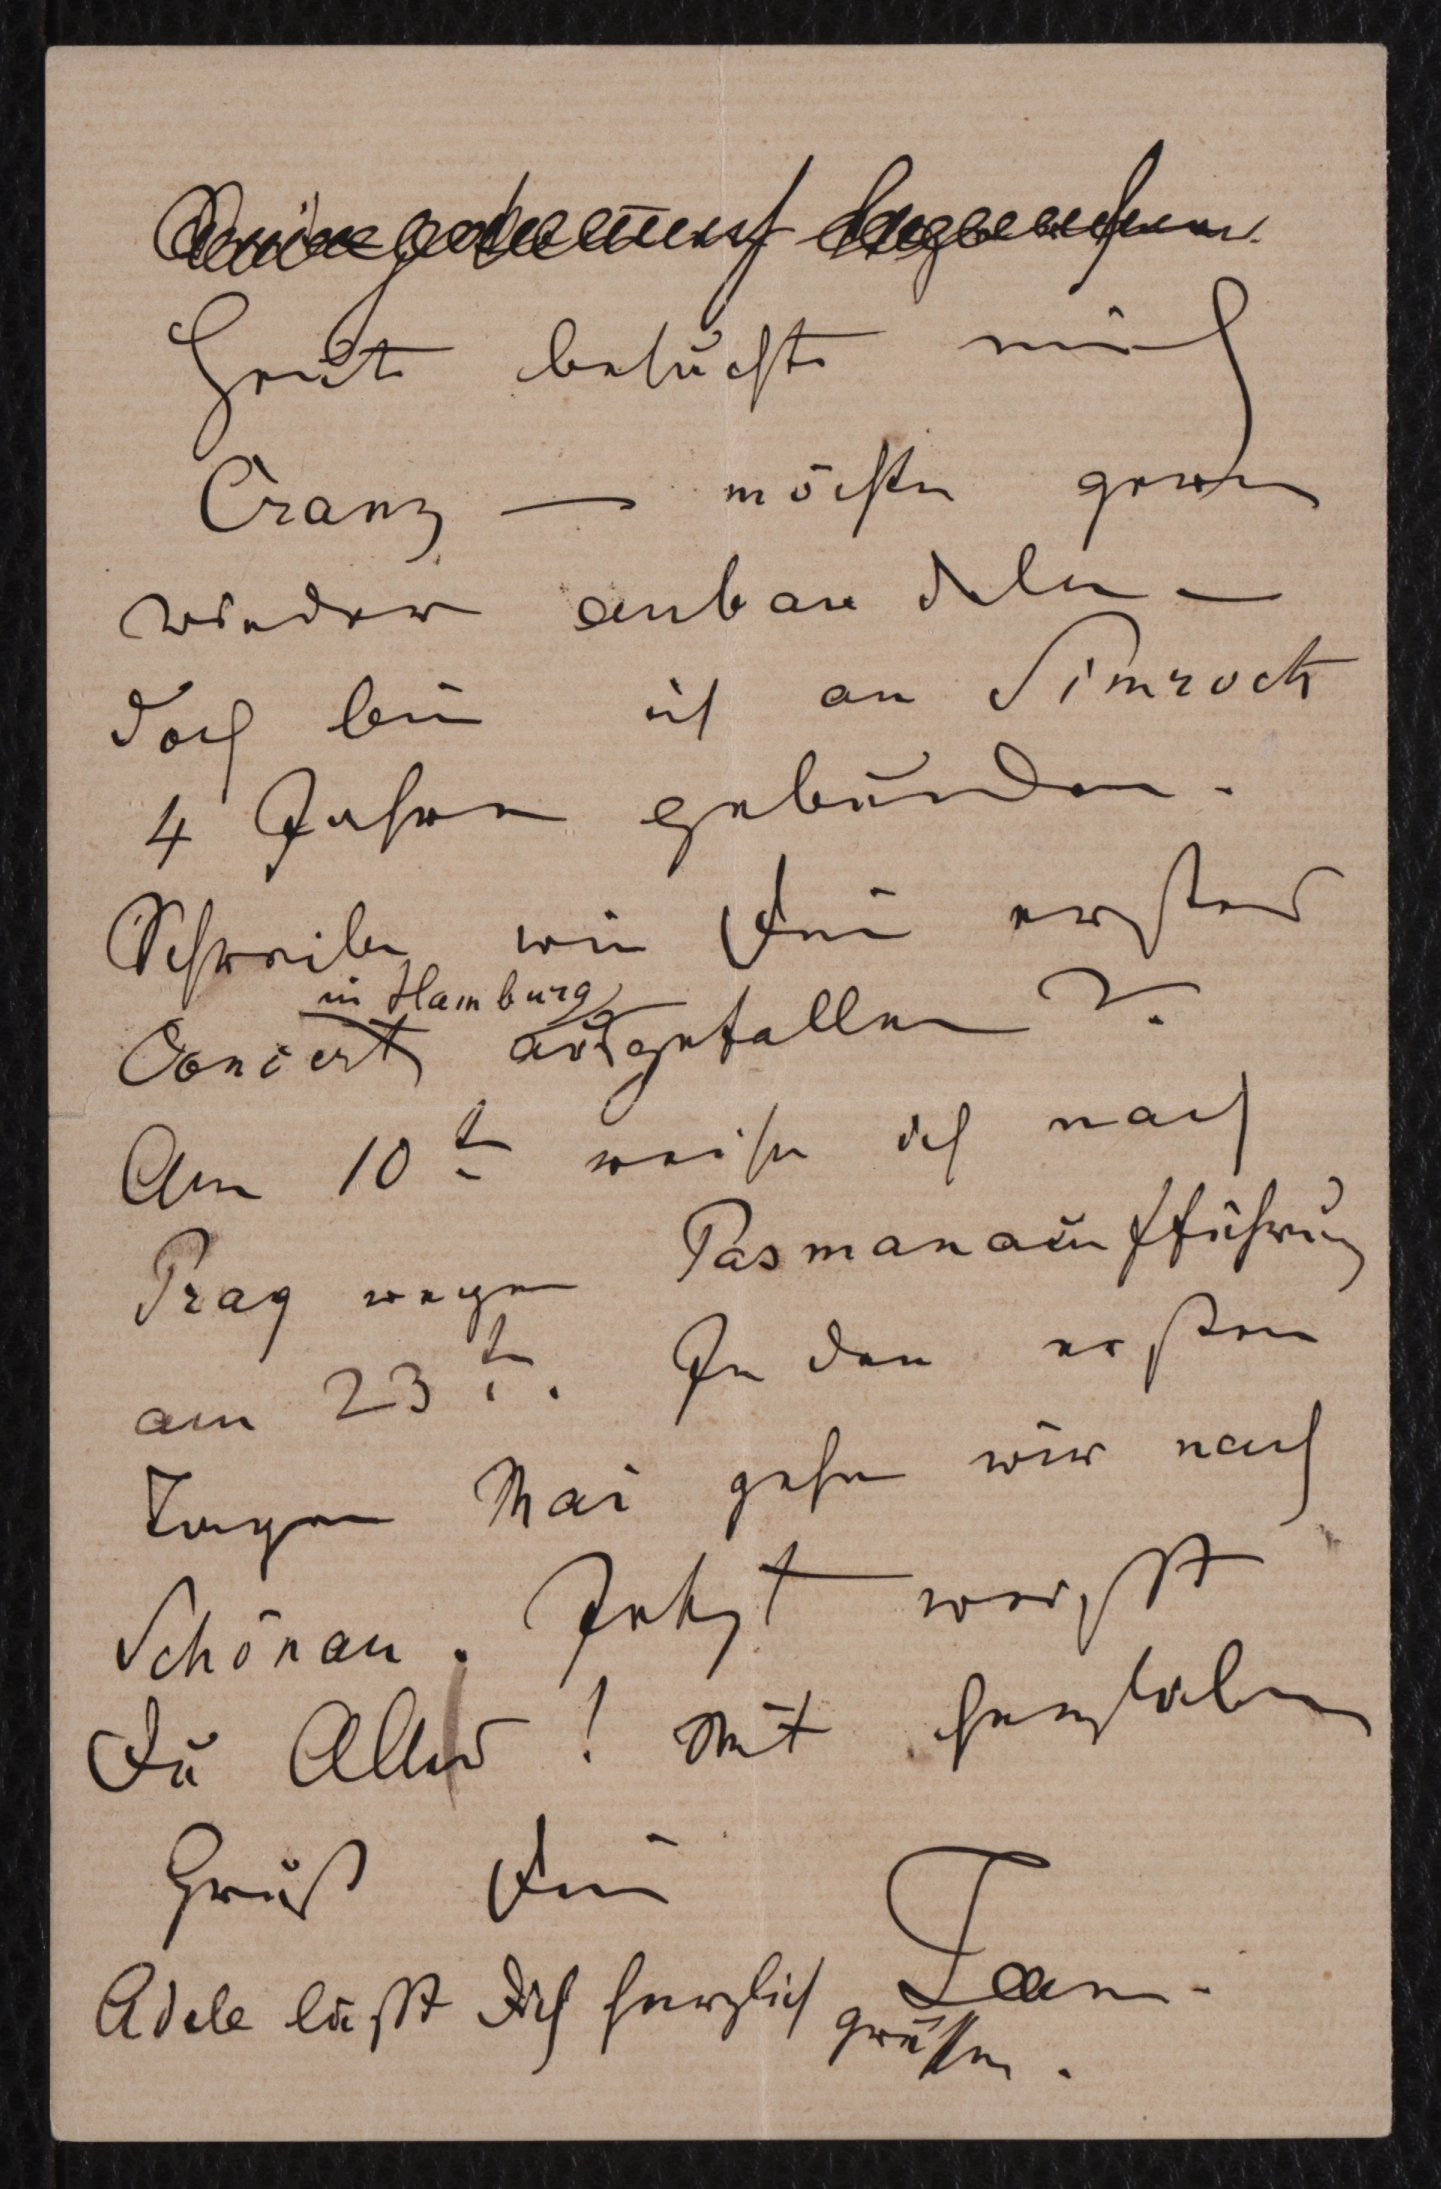 Heute besuchte mich
Cranz — möchte gerne
wieder anbandeln —
doch bin ich an Simrock
4 Jahre gebunden.
Schreibe wie Dein erstes
in Hamburg
Concert ausgefallen?
Am 10t reise ich nach
Prag wegen Pasmanaufführung
am 23t. In den ersten
Tagen Mai gehen wir nach
Schönau. Jetzt weißt
Du Alles! Mit herzlichem
Gruß Dein
Jean.
Adele läßt Dich herzlich
grüssen.